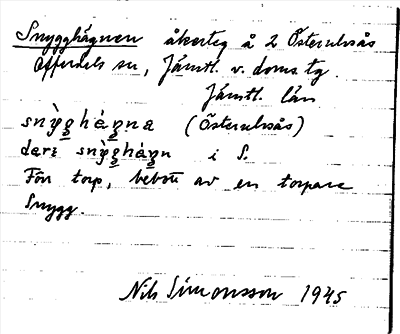 Snygghägnen åkerteg å 2 Österulvsås
Offerdals sn, Jämtl. v. doms. tg.
Jämtl. län
snỳg̲hág̲na (Österulvsås)
dari snỳg̲hág̲n i S.
Förr torp, bebott av en torpare
Snygg.
Nils Simonsson 1945